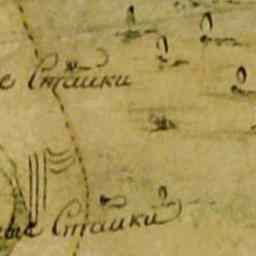 е Станки
ые Станки